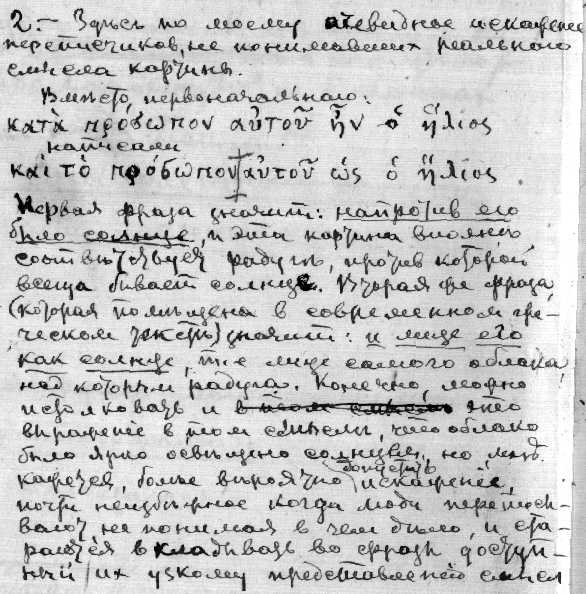 2.– Здѣсь по моему очевидное искаженіе
переписчиков, не понимавших реальнаго
смысла картины.
Вмѣсто первоначальнаго:
κατὰ πρόσωπον αὐτοῦ ἦν ὁ ἥλιος
написали
καὶ τὸ πρόσωπον αὐτοῦ ὡς ὁ ἥλιος.
Первая фраза значит: напротив его
было солнце, и эта картина вполнѣ
соотвѣтствует радугѣ, против которой
всегда бывает солнце. Вторая же фраза
(которая помѣщена в современном гре-
ческом текстѣ) значит: и лице его
как солнце, т.е лице самого облака
над которым радуга. Конечно, можно
истолковать и в том смыслѣ это
выраженіе в том смыслѣ, что облако
было ярко освѣщено солнцем, но мнѣ
кажется, болѣе вѣроятно допустить искаженіе,
почти неизбѣжное когда люди переписы-
вают не понимая в чем дѣло, и ста-
раются вкладывать во фразы доступ-
ный их узкому представленію смысл